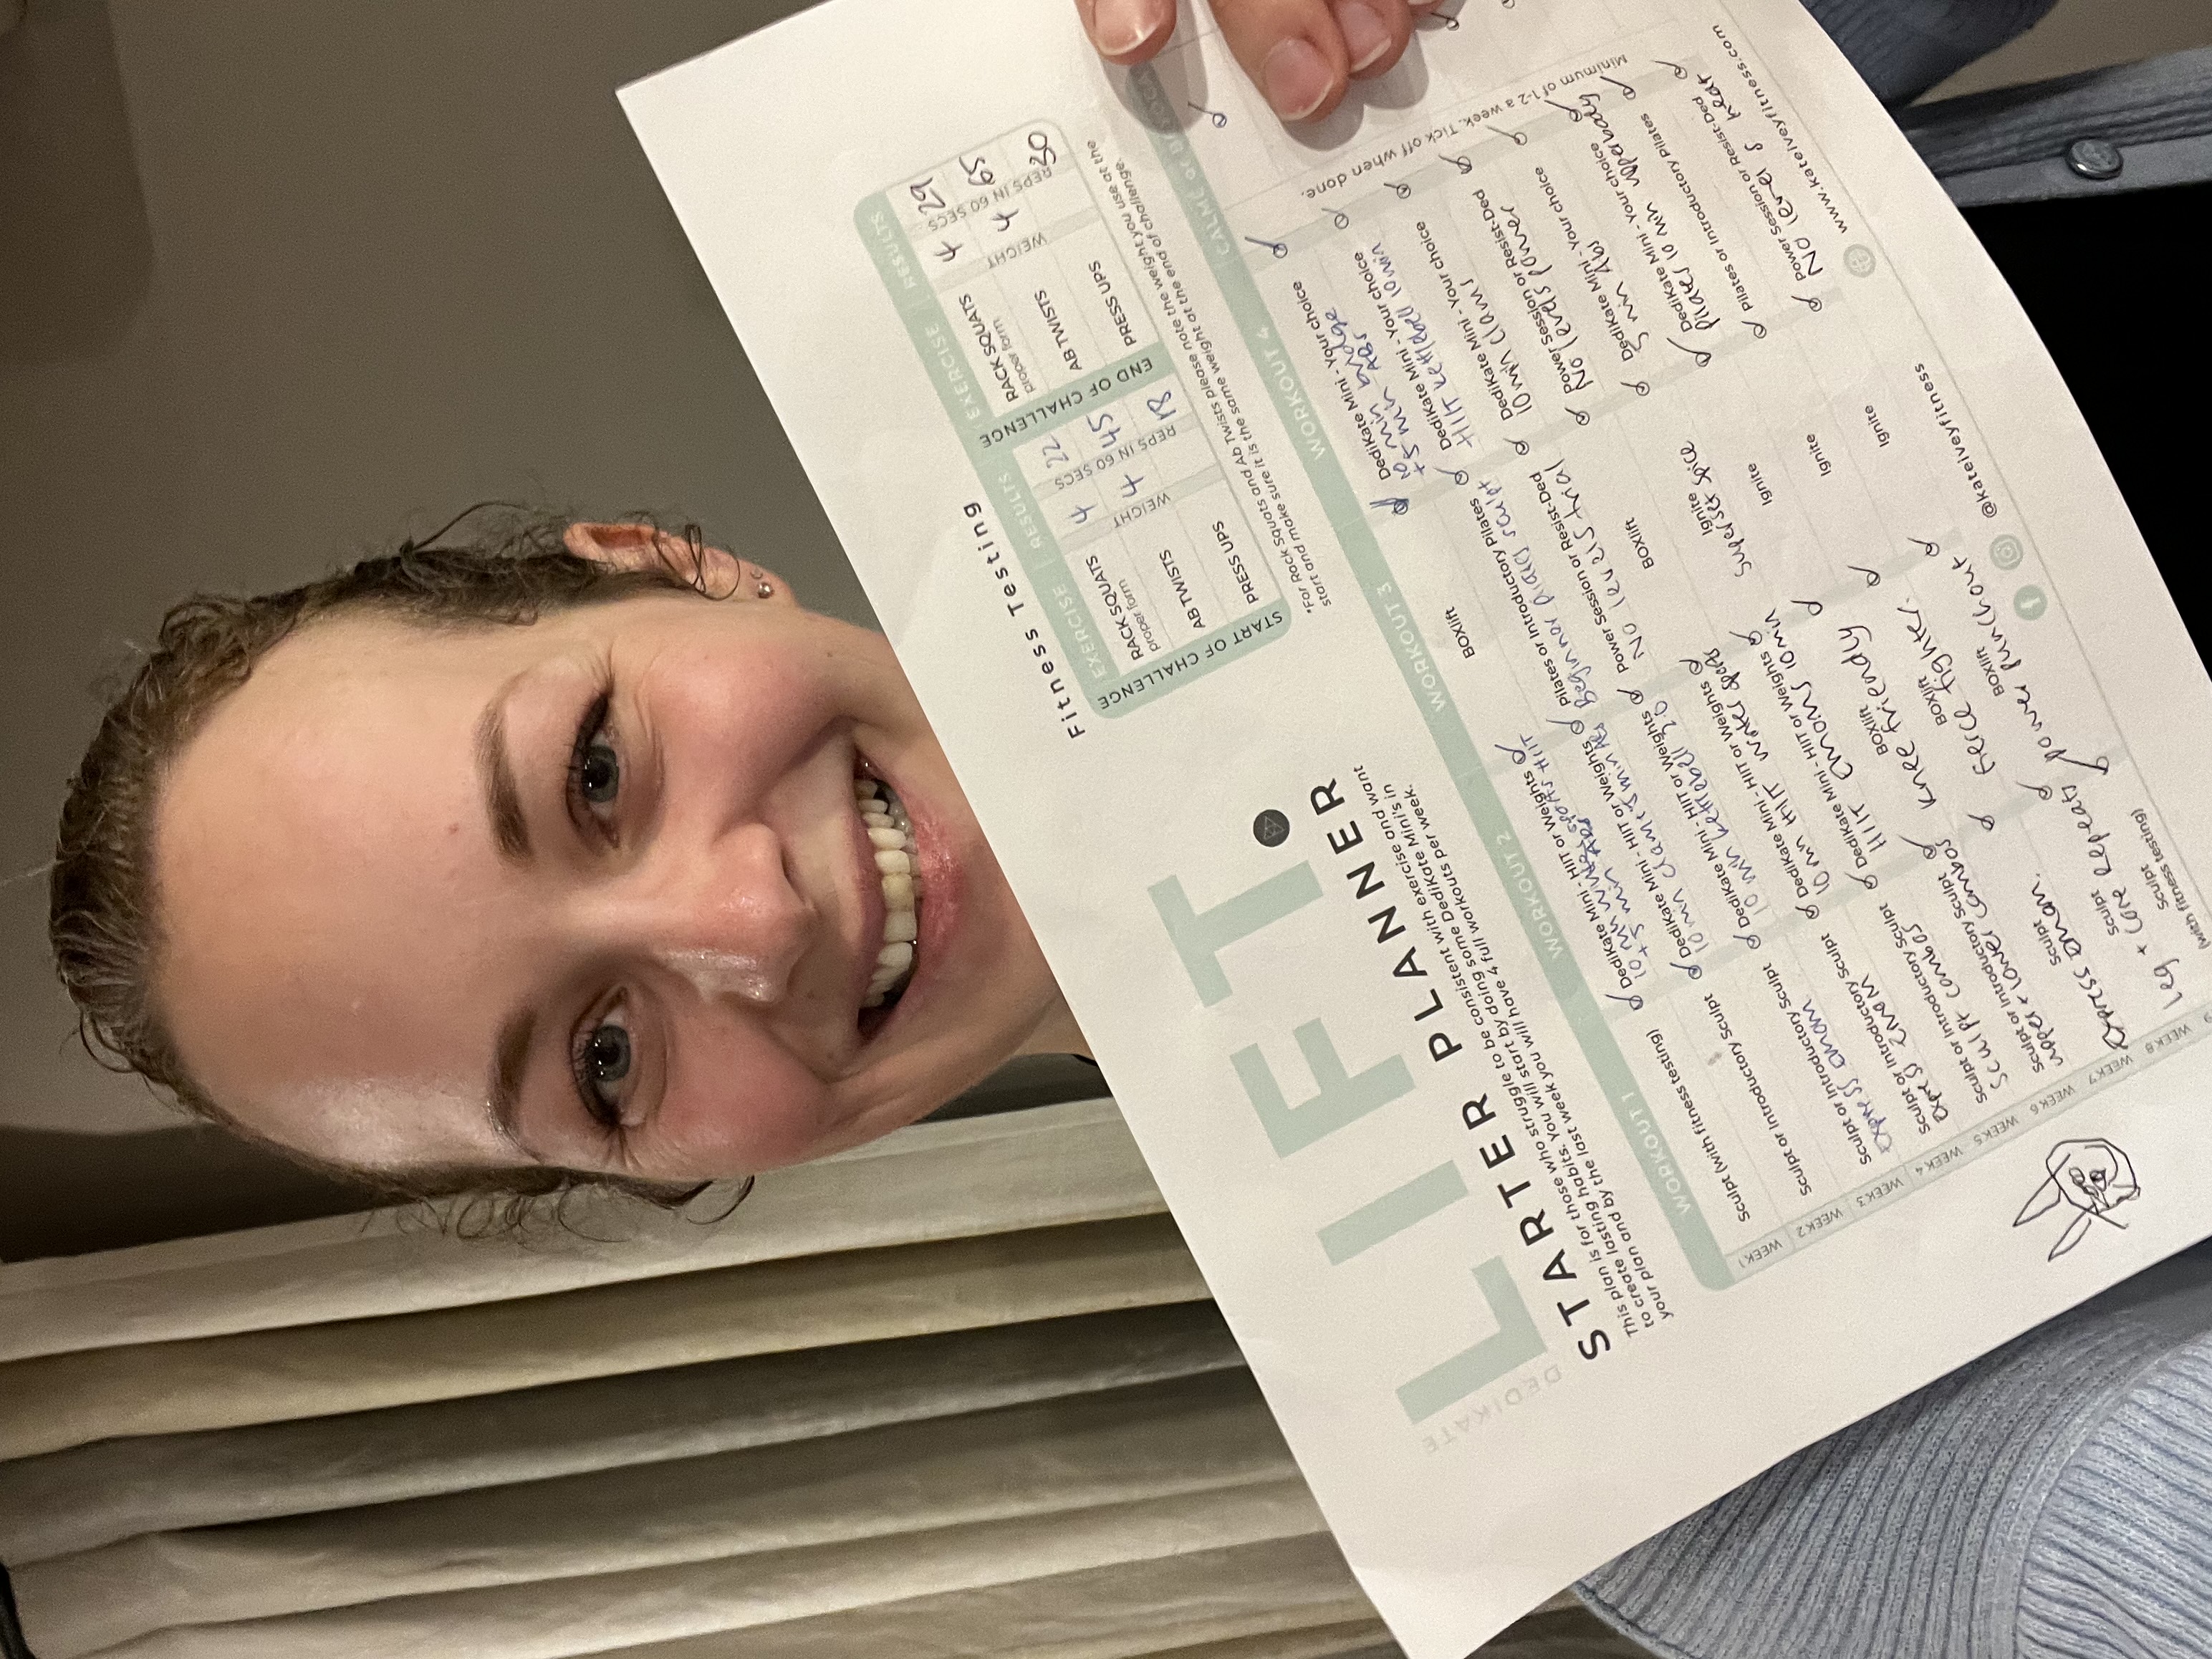 DEDIKATE
LIFT
STARTER PLANNER
This plan is for those who struggle to be consistent with exercise and want
to create lasting habits. You will start by doing some Dedikate Mini's in
your plan and by the last week you will have 4 full workouts per week.
Fitness Testing
EXERCISE | RESULTS
START OF CHALLENGE
RACK SQUATS
proper form
4
22
AB TWISTS
WEIGHT
4
REPS IN 60 SECS
45
PRESS UPS
18
EXERCISE | RESULTS
END OF CHALLENGE
RACK SQUATS
proper form
4
29
AB TWISTS
WEIGHT
4
REPS IN 60 SECS
65
PRESS UPS
50
*For Rack Squats and Ab Twists please note the weight you use at the
start and make sure it is the same weight at the end of challenge.
WORKOUT 1
WORKOUT 2
WORKOUT 3
WORKOUT 4
WEEK 1
Sculpt (with fitness testing)
Dedikate Mini - HIIT or Weights
10 min
+ 5 min
HIIT
BOXlift
Dedikate Mini - Your choice
10 min bridge
+ 5 min Abs
WEEK 2
Sculpt or Introductory Sculpt
Dedikate Mini - HIIT or Weights
10 min clams + 5 min Abs
Pilates or Introductory Pilates
Beginner pilates sculpt
Dedikate Mini - Your choice
HIIT kettlebell 10 min
WEEK 3
Sculpt or Introductory Sculpt
express emom
Dedikate Mini - HIIT or Weights
10 min kettlebell 2.0
Power Session or Resist-Ded
No levels trial
Dedikate Mini - Your choice
10 min clams
WEEK 4
Sculpt or Introductory Sculpt
express emom
Dedikate Mini - HIIT or Weights
10 min HIIT
BOXlift
Power Session or Resist-Ded
No levels power
WEEK 5
Sculpt or Introductory Sculpt
Sculpt combos
Dedikate Mini - HIIT or Weights
HIIT emoms 10 min
Ignite
Superset spice
Dedikate Mini - Your choice
5 min Abs
WEEK 6
Sculpt or Introductory Sculpt
upper + lower combos
BOXlift
knee friendly
Ignite
Dedikate Mini - Your choice
pilates 10 min upperbody
WEEK 7
Sculpt
Express emom.
BOXlift
fierce fighter.
Ignite
Pilates or Introductory Pilates
WEEK 8
Sculpt
leg + core repeats
BOXlift
power punchout
Ignite
Power Session or Resist-Ded
No levels heat
Sculpt
(with fitness testing)
Minimum of 1-2 a week. Tick off when done.
@kateiveyfitness
www.kateiveyfitness.com